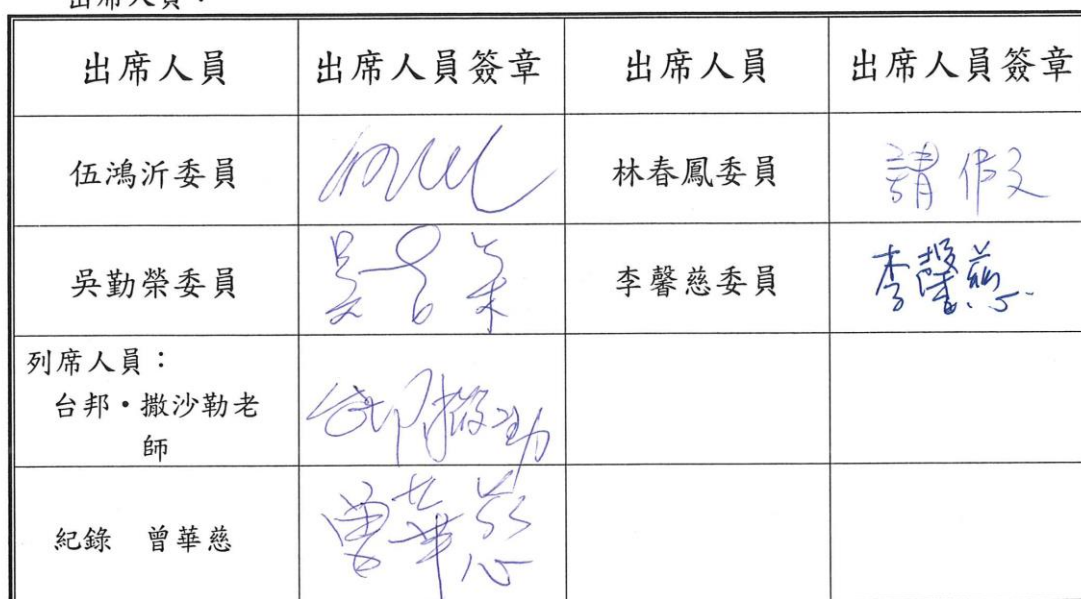 出席人員：
出席人員 出席人員簽章 出席人員 出席人員簽章
伍鴻沂委員 林春鳳委員 請假
吳勤榮委員 李馨慈委員 李馨慈
列席人員：
台邦・撒沙勒老
師
紀錄 曾華慈 曾華慈